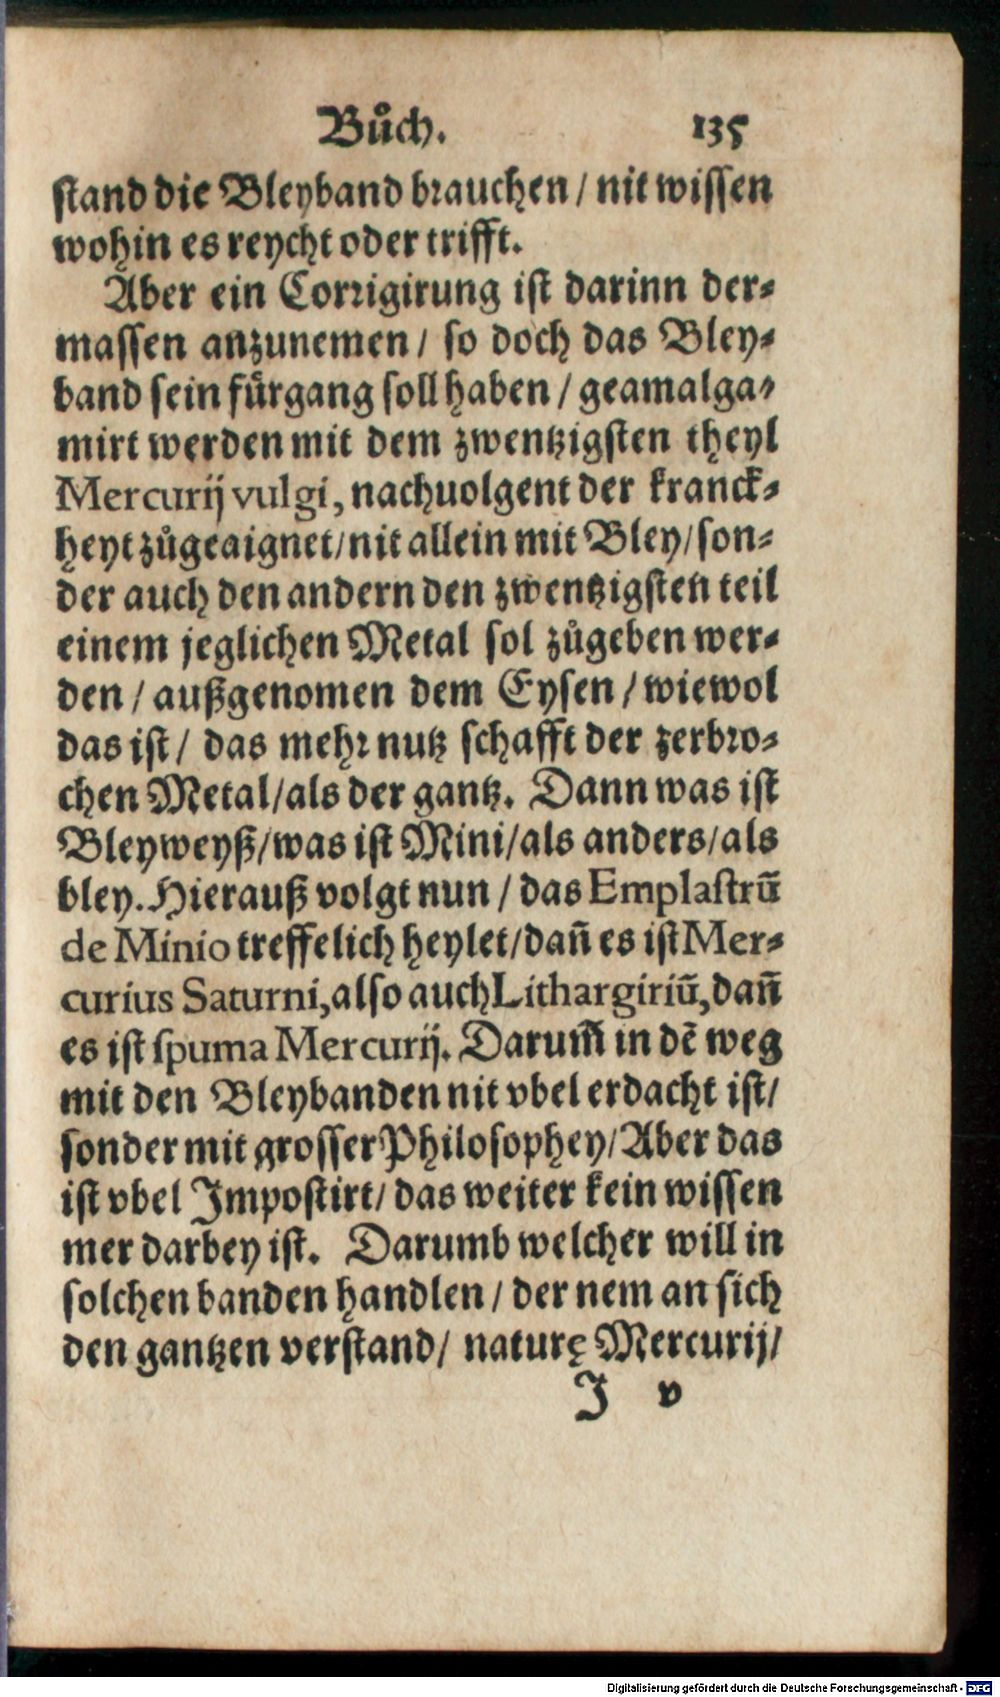 Bůch. 135
stand die Bleyband brauchen / nit wissen
wohin es reycht oder trifft.
Aber ein Corrigirung ist darinn der⸗
massen anzunemen / so doch das Bley⸗
band sein fürgang soll haben / geamalga⸗
mirt werden mit dem zwentzigsten theyl
Mercurij vulgi, nachuolgent der kranck⸗
heyt zůgeaignet / nit allein mit Bley / son⸗
der auch den andern den zwentzigsten teil
einem jeglichen Metal sol zůgeben wer⸗
den / außgenomen dem Eysen / wiewol
das ist / das mehr nutz schafft der zerbro⸗
chen Metal / als der gantz. Dann was ist
Bleyweyß / was ist Mini / als anders / als
bley. Hierauß volgt nun / das Emplastrū
de Minio treffelich heylet / dañ es ist Mer⸗
curius Saturni, also auch Lithargiriū, dañ
es ist spuma Mercurij. Darum̃ in dē weg
mit den Bleybanden nit vbel erdacht ist /
sonder mit grosser Philosophey / Aber das
ist vbel Impostirt / das weiter kein wissen
mer darbey ist. Darumb welcher will in
solchen banden handlen / der nem an sich
den gantzen verstand / naturę Mercurij /
J v
Digitalisierung gefördert durch die Deutsche Forschungsgemeinschaft - DFG